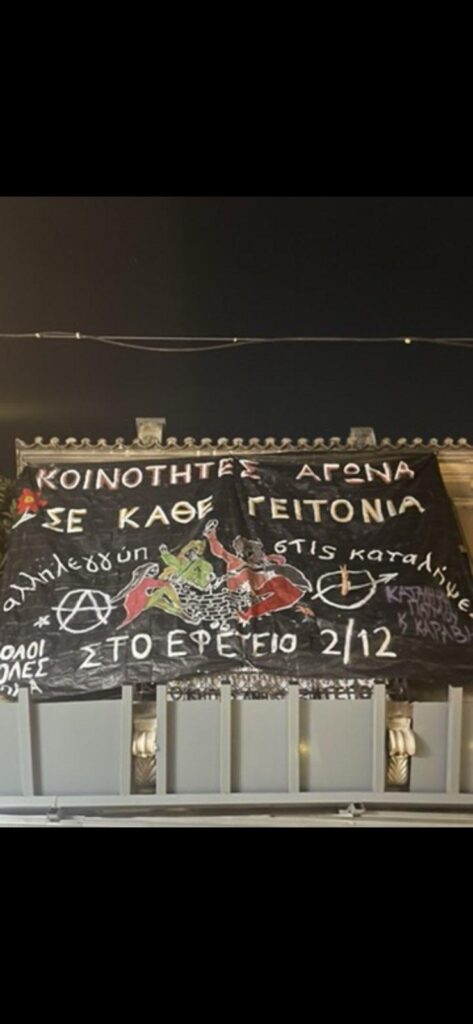 ΚΟΙΝΟΤΗΤΕΣ ΑΓΩΝΑ
ΣΕ ΚΑΘΕ ΓΕΙΤΟΝΙΑ
αλληλεγγύη στις καταλήψεις
ΣΤΟ ΕΦΕΤΕΙΟ 2/12
ΟΛΟΙ
ΟΛΕΣ